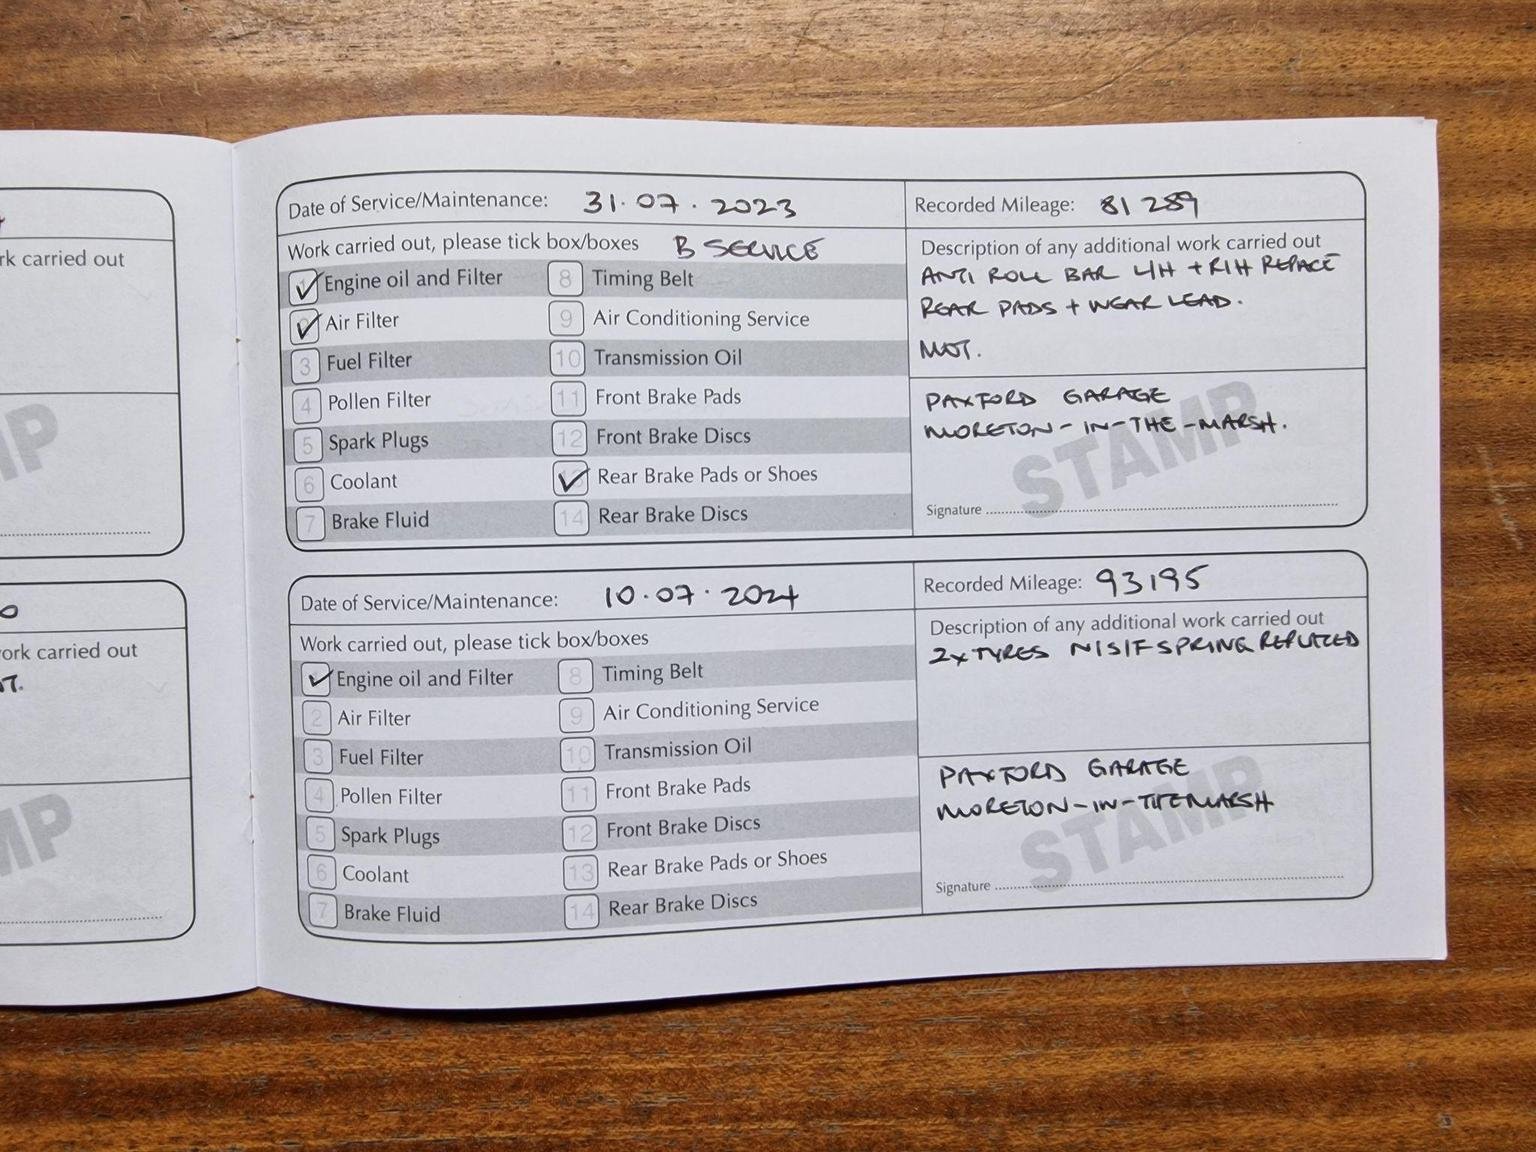 rk carried out
MP
O
ork carried out
OT.
MP
Date of Service/Maintenance: 31.07.2023
Recorded Mileage: 81289
Work carried out, please tick box/boxes B SERVICE
1 Engine oil and Filter
2 Air Filter
3 Fuel Filter
4 Pollen Filter
5 Spark Plugs
6 Coolant
7 Brake Fluid
8 Timing Belt
9 Air Conditioning Service
10 Transmission Oil
11 Front Brake Pads
12 Front Brake Discs
13 Rear Brake Pads or Shoes
14 Rear Brake Discs
Description of any additional work carried out
ANTI ROLL BAR L/H + R/H REPACE
REAR PADS + WEAR LEAD.
MOT.
PAXFORD GARAGE
MORETON-IN-THE-MARSH.
STAMP
Signature
Date of Service/Maintenance: 10.07.2024
Recorded Mileage: 93195
Work carried out, please tick box/boxes
1 Engine oil and Filter
2 Air Filter
3 Fuel Filter
4 Pollen Filter
5 Spark Plugs
6 Coolant
7 Brake Fluid
8 Timing Belt
9 Air Conditioning Service
10 Transmission Oil
11 Front Brake Pads
12 Front Brake Discs
13 Rear Brake Pads or Shoes
14 Rear Brake Discs
Description of any additional work carried out
2x TYRES N/S/F SPRING REPLACED
PAXFORD GARAGE
MORETON-IN-THEMARSH
STAMP
Signature